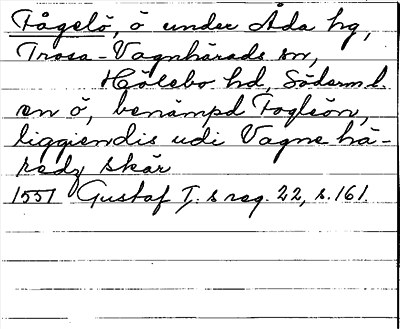 Fågelö, ö under Åda hg,
Trosa-Vagnhärads sn,
Hölebo hd, Söderm. l.
en ö, benämpd Foglsön,
liggiendis udi Vagne hä-
redz skär
1551 Gustaf I:s reg. 22, s. 161.